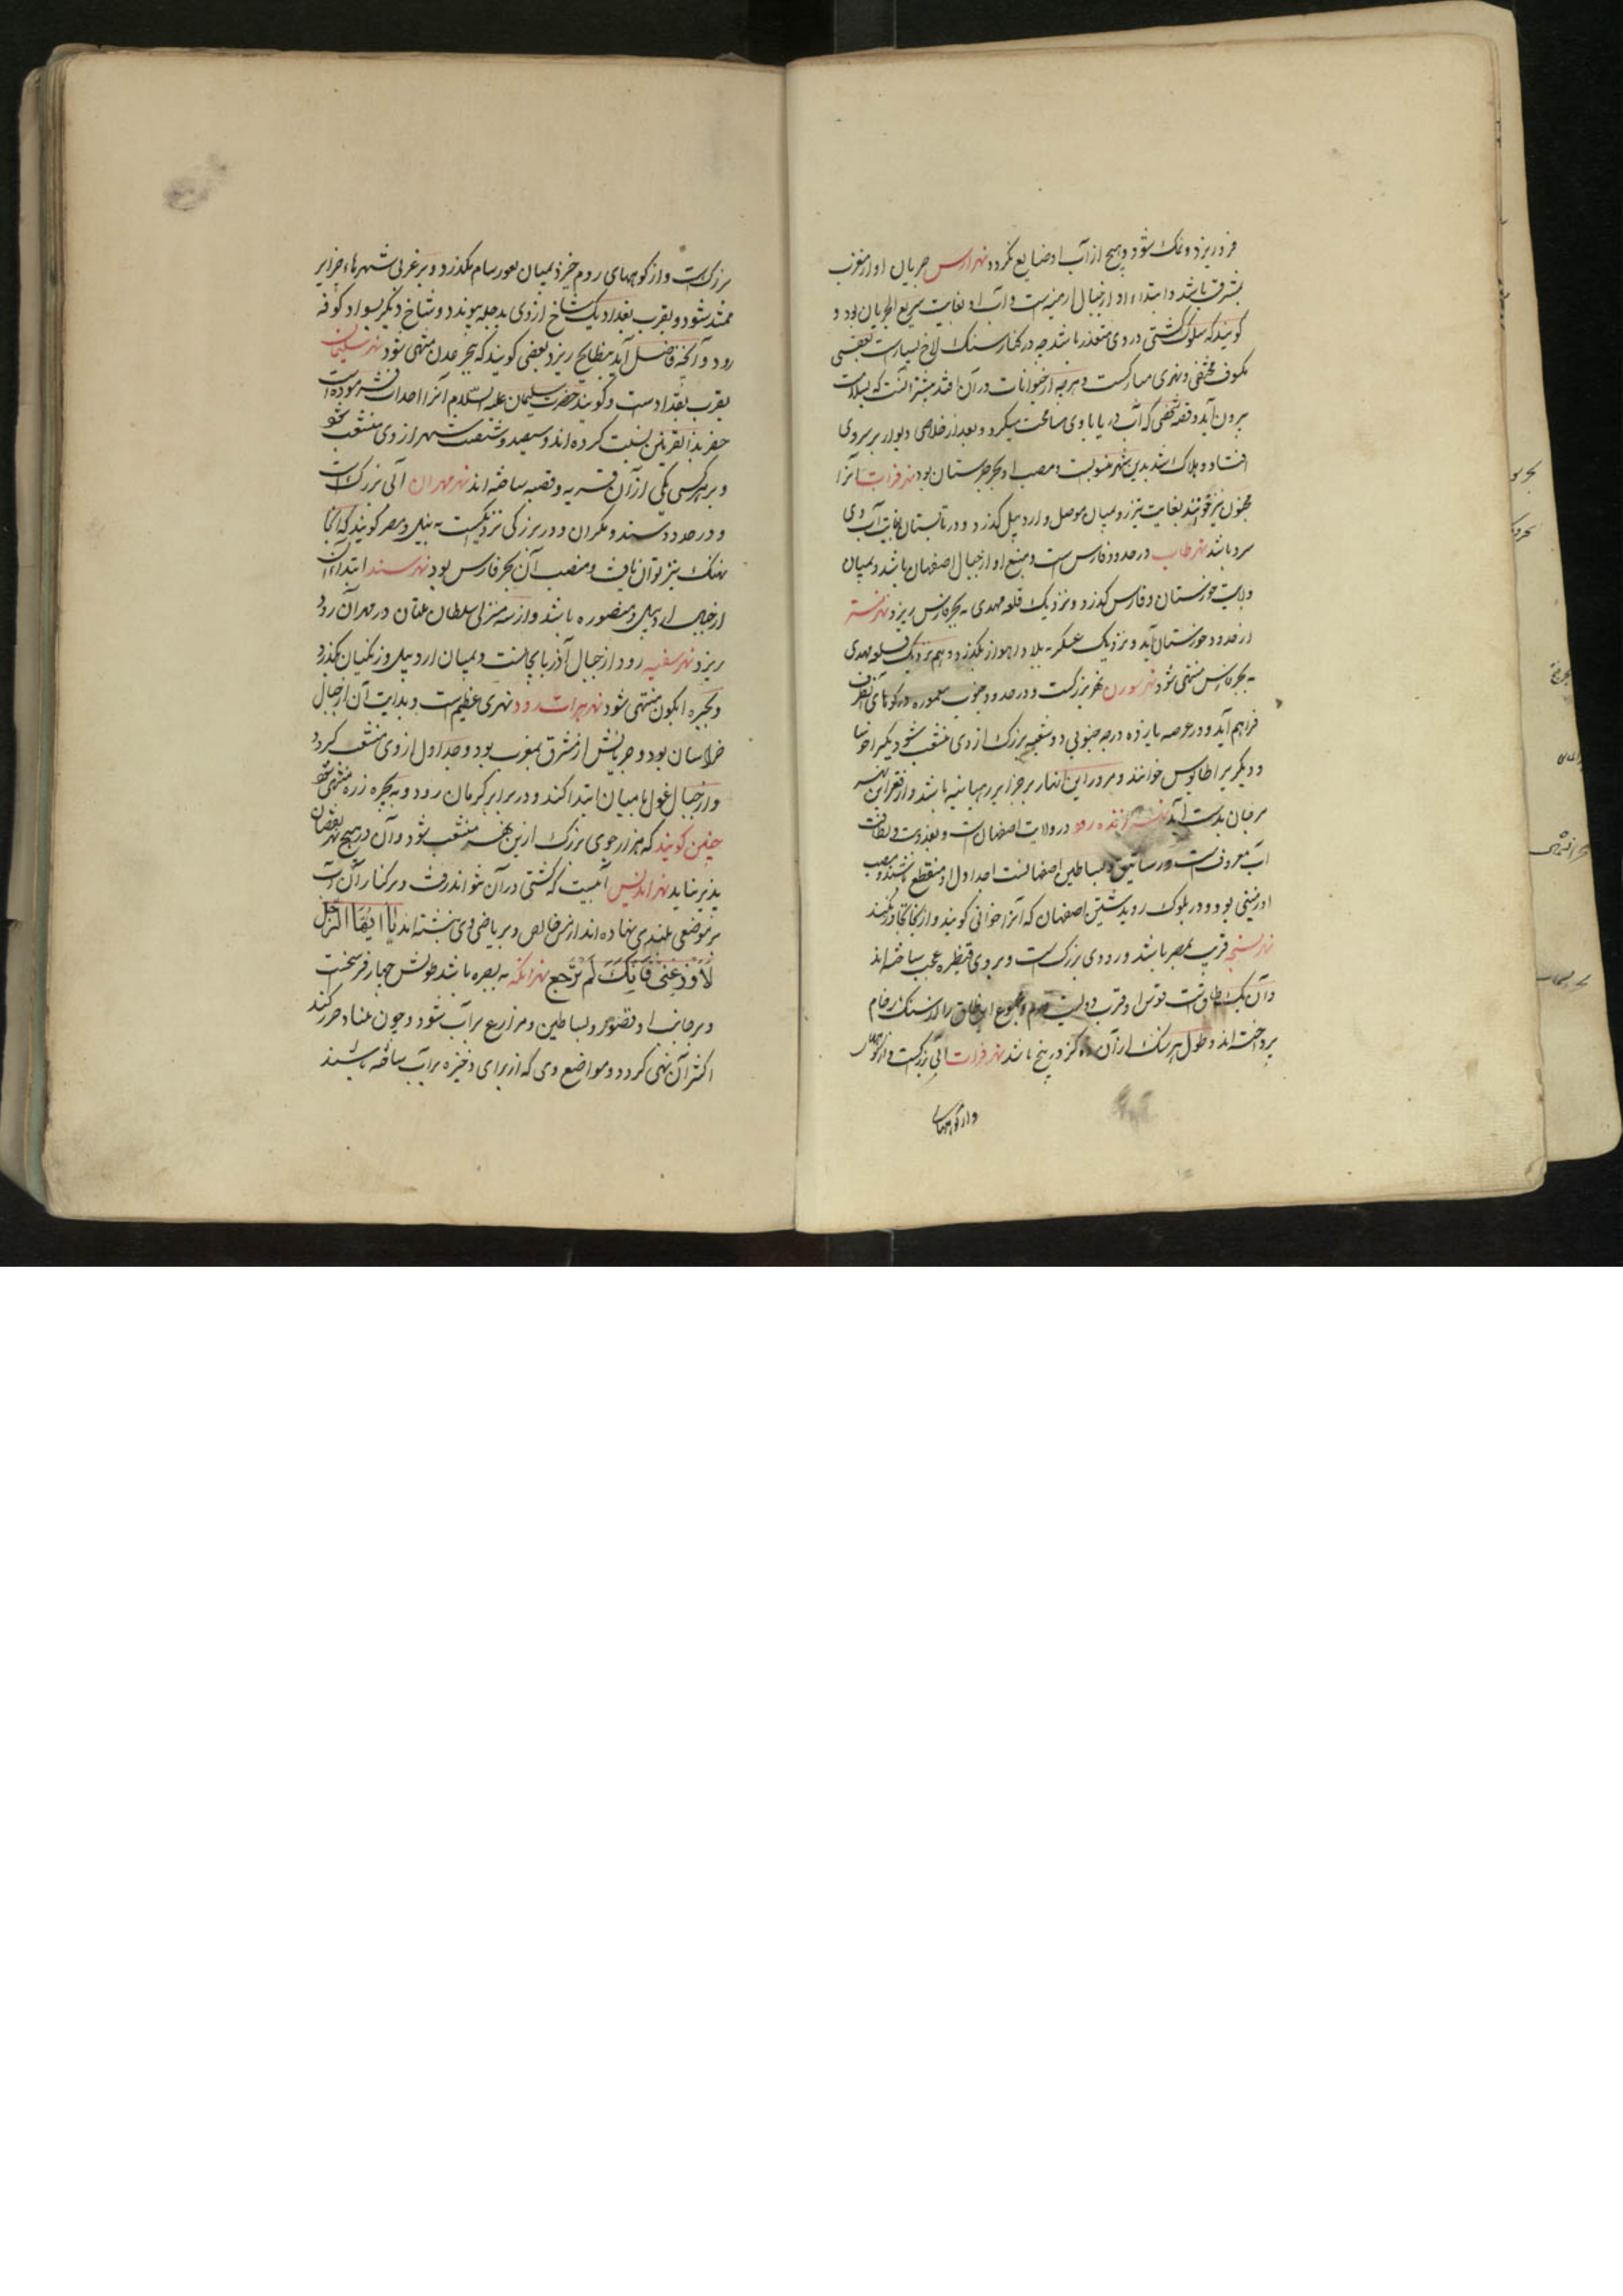 فرو ریزد و نمک شود و هیچ از آب او ضایع نگردد نهر ارس جریان او از مغرب
بمشرق باشد و ابتداء او از جبال ارمنیه است و آب او بغایت سریع الجریان بود و
گویند که سلوک کشتی در وی متعذر باشد چه در کنار سنک لاخ بسیارست بعضی
مکشوف مختفی و نهری مبارکست و هرچه از حیوانات در آن افتد بیشتر آنست که بسلامت
بیرون آید و قصه شخصی که آب دریا با وی مسامحت میکرد و بعد از خلاصی دیوار بر سر وی
افتاد و هلاک شد بدین شهر منسوبست و مصب او بحر جرستان بود نهر فرات آنرا
مجنون نیز خوانند بغایت تیزرو بمیان موصل و اردبیل گذرد و در تابستان بغایت آب وی
سرد باشد نهر طاب در حدود فارس است و منبع او از جبال اصفهان باشد و بمیان
ولایت خوزستان و فارس گذرد و نزدیک قلعه مهدی به بحر فارس ریزد نهر تستر
از حدود خوزستان آید و نزدیک عسکر به بلاد اهواز بگذرد و هم نزدیک قلعه مهدی
به بحر فارس منتهی شود نهر سورن نهر بزرکست و در حدود جنوب معموره در کوهای
فراهم آید و در عرصه یازده درجه جنوبی دو شعبه بزرک از وی منشعب شود یکیرا
و دیگریرا طاوس خوانند و مرور این انهار بر جزایر رهبانیه باشد و از قعر این نهر
مرجان بدست آید نهر زنده رود در ولایت اصفهان است و بعذوبت و لطافت
آب معروفست و رساتیق و بساطین اصفهانست جداول او منقطع باشد و مصب
او زمینی بود و در بلوک رویدشتین اصفهان که آنرا خوانی گویند و از آنجا تجاوز نکند
نهر سنجه قریب بمصر باشد و رودی بزرک است و بر وی قنطره عجب ساخته اند
و آن یک طاق است قوس او قرب دویست قدم و مجموع این طاق را از سنک رخام
پرداخته اند و طول هر سنک از آن ده گز در پنج باشد نهر فرات آبی بزرکست و از کوهها
و از کوههای
بزرک است و از کوههای روم خیزد بمیان نعور سام بگذرد و بر غربی شهرهاء جزایر
ممتد شود و بقرب بغداد یک شاخ از وی بدجله پیوندد و شاخ دیگر بسواد کوفه
رود و آنچه فاضل آید ببطایح ریزد بعضی گویند که ببحر عدن منتهی شود نهر سلیمان
بقرب بغدادست و گویند حضرت سلیمان علیه السلام آنرا احداث فرموده است
حفر بذو القرنین نسبت کرده اند و سیصد و شصت شهر از وی منشعب شود
و بر هر کسی یکی از آن قریه و قصبه ساخته اند نهر مهران آبی بزرک است
و در حدود سند و مکران و در بزرگی نزدیکست به نیل و مصر گویند که آنجا
نهنک نیز توان یافت و مصب آن بحر فارس بود نهر سند ابتداء آن
از جبال اردبیل و منصوره باشد و از سه منزلی سلطان ملتان در مهران رود
ریزد نهر سفید رود از جبال آذربایجانست و بمیان اردبیل و زنکیان بگذرد
و بحیره آبکون منتهی شود نهر هرات رود نهری عظیم است و بدایت آن از جبال
خراسان بود و جریانش از مشرق بمغرب بود و جداول از وی منشعب گردد
و از جبال غول بامیان ابتدا کند و در برابر کرمان رود و به بحیره زره منتهی شود
چنین گویند که هزار جوی بزرک ازین نهر منشعب شود و آن در هیچ نهر نقصان
پذیر نیاید نهر اندلس آبیست که کشتی در آن نتواند رفت و بر کنار آن آب
بر موضعی بلندی نهاده اند از مس خالص و بر بیاض وی نبشته اند یا ایها الرجل
لاوذ عنی فانک لم ترجع نهر ابله به بصره باشد طولش چهار فرسخست
و بر جانب او قصور و بساطین و مزارع پر آب شود و چون مد و جزر کند
اکثر آن تهی گردد و مواضع وی که از برای ذخیره بر آب ساخته باشند